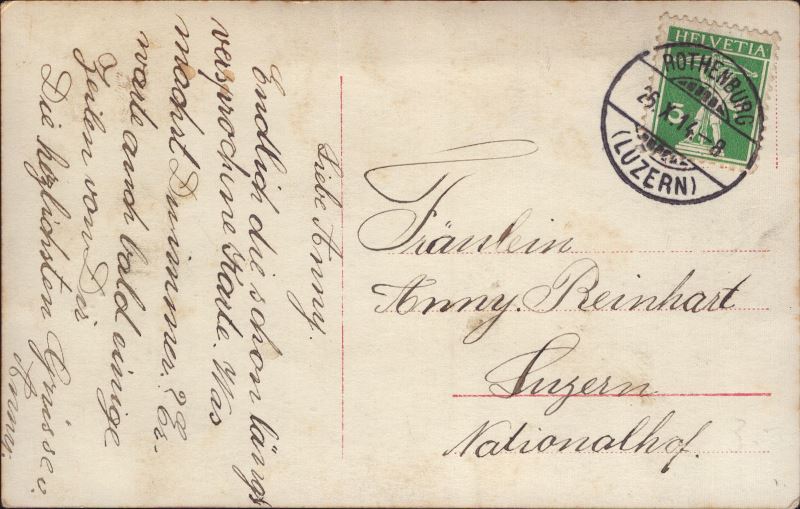 Liebe Anny.
Endlich die schon längst
versprochene Karte. Was
machst Du immer? Er-
warte auch bald einige
Zeilen von Dir
Die hzlichsten Grüsse v.
Anny.
HELVETIA
5
ROTHENBURG
26.X.14.-8
(LUZERN)
Fräulein
Anny. Reinhart
Luzern
Nationalhof.